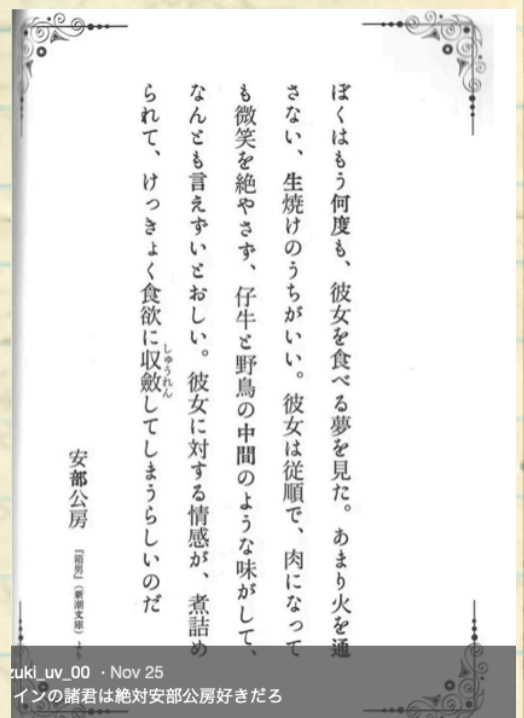 ぼくはもう何度も、彼女を食べる夢を見た。あまり火を通
さない、生焼けのうちがいい。彼女は従順で、肉になって
も微笑を絶やさず、仔牛と野鳥の中間のような味がして、
なんとも言えずいとおしい。彼女に対する情感が、煮詰め
られて、けっきょく食欲に収斂してしまうらしいのだ
しゅうれん
安部公房 『箱男』(新潮文庫)より
zuki_uv_00 ・Nov 25
インの諸君は絶対安部公房好きだろ